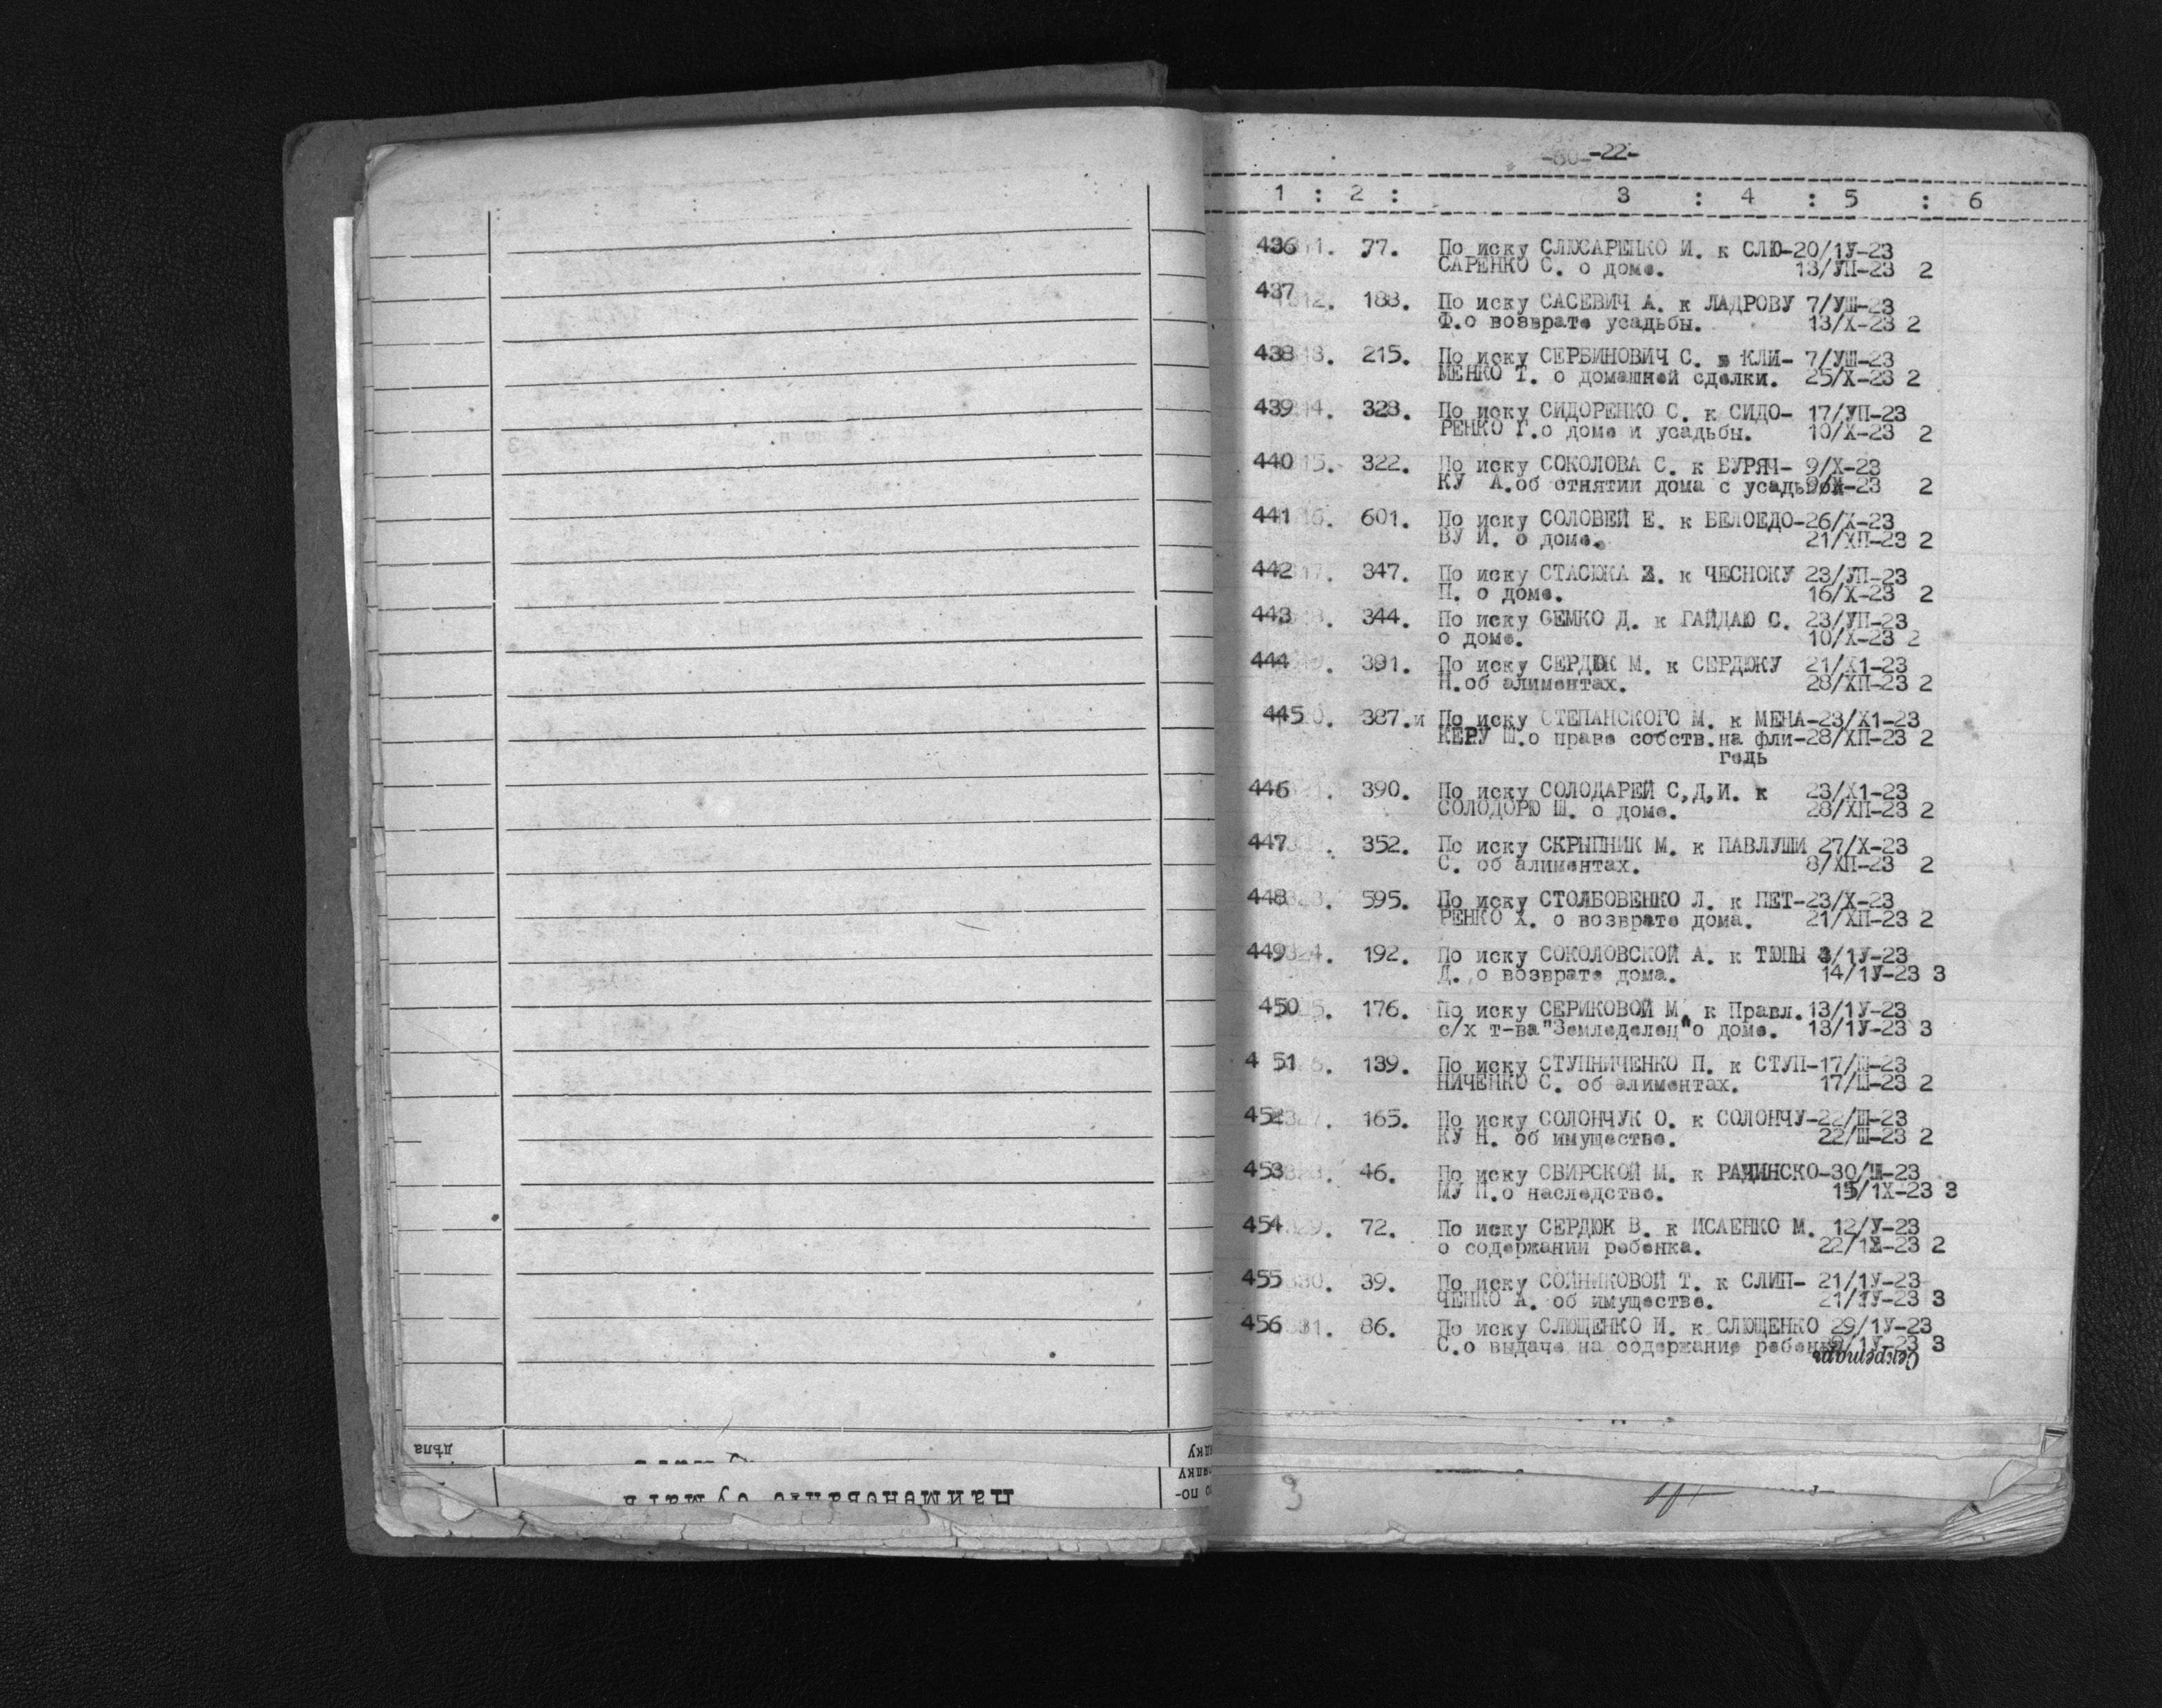 -22-
1 : 2 : 3 : 4 : 5 : 6
436 77. По иску СЛЮСАРЕНКО И. к СЛЮ-20/1У-23
САРЕНКО С. о доме. 13/УП-23 2
437 188. По иску САСЕВИЧ А. к ЛАДРОВУ 7/УШ-23
Ф.о возврате усадьбы. 13/Х-23 2
438 215. По иску СЕРБИНОВИЧ С. в КЛИ- 7/УШ-23
МЕНКО Т. о домашней сделки. 25/Х-23 2
439 328. По иску СИДОРЕНКО С. к СИДО- 17/УП-23
РЕНКО Г.о доме и усадьбы. 10/Х-23 2
440 322. По иску СОКОЛОВА С. к БУРЯЧ- 9/Х-23
КУ А.об отнятии дома с усадьбой 9/Х-23 2
441 601. По иску СОЛОВЕЙ Е. к БЕЛОЕДО-26/Х-23
ВУ И. о доме. 21/ХП-23 2
442 347. По иску СТАСЮКА к ЧЕСНОКУ 23/УП-23
П. о доме. 16/Х-23 2
443 344. По иску СЕМКО Д. к ГАЙДАЮ С. 23/УП-23
о доме. 10/Х-23 2
444 391. По иску СЕРДЮК М. к СЕРДЮКУ 21/Х1-23
Н.об алиментах. 28/ХП-23 2
445 387.и По иску СТЕПАНСКОГО М. к МЕНА-23/Х1-23
КЕРУ Ш.о праве собств.на фли-28/ХП-23 2
гель
446 390. По иску СОЛОДАРЕЙ С,Д,И. к 23/Х1-23
СОЛОДОРЮ Ш. о доме. 28/ХП-23 2
447 352. По иску СКРЫПНИК М. к ПАВЛУШИ 27/Х-23
С. об алиментах. 8/ХП-23 2
448 595. По иску СТОЛБОВЕНКО Л. к ПЕТ-23/Х-23
РЕНКО Х. о возврате дома. 21/ХП-23 2
449 192. По иску СОКОЛОВСКОЙ А. к ТЮПЫ /1У-23
Д. о возврате дома. 14/1У-23 3
450 176. По иску СЕРИКОВОЙ М. к Правл.13/1У-23
с/х т-ва"Земледелец"о доме. 13/1У-23 3
4 51 139. По иску СТУПНИЧЕНКО П. к СТУП-17/Ш-23
НИЧЕНКО С. об алиментах. 17/Ш-23 2
452 165. По иску СОЛОНЧУК О. к СОЛОНЧУ-22/Ш-23
КУ Н. об имуществе. 22/Ш-23 2
453 46. По иску СВИРСКОЙ М. к РАЧИНСКО-30/Ш-23
МУ П.о наследстве. 15/1Х-23 3
454 72. По иску СЕРДЮК В. к ИСАЕНКО М. 12/У-23
о содержании ребенка. 22/1Х-23 2
455 39. По иску СОЙНИКОВОЙ Т. к СЛИП- 21/1У-23
ЧЕНКО А. об имуществе. 21/1У-23 3
456 86. По иску СЛЮЩЕНКО И. к СЛЮЩЕНКО 29/1У-23
С.о выдаче на содержание ребенка /1У-23 3
Секретарь
дѣла
наименованіе бумагъ
по по-
рядку